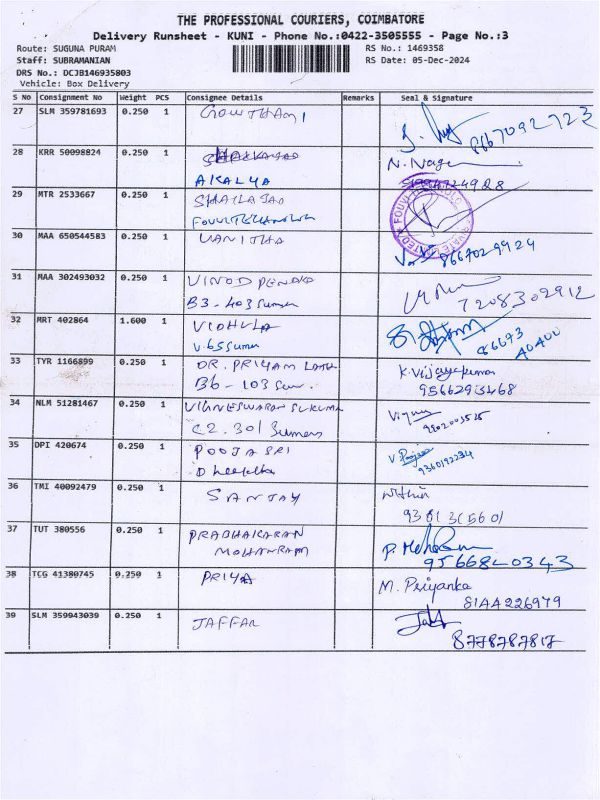 THE PROFESSIONAL COURIERS, COIMBATORE
Delivery Runsheet - KUNI - Phone No.:0422-3505555 - Page No.:3
Route: SUGUNA PURAM
RS No.: 1469358
Staff: SUBRAMANIAN
RS Date: 05-Dec-2024
DRS No.: DCJB146935803
Vehicle: Box Delivery
S No Consignment No Weight PCS Consignee Details Remarks Seal & Signature
27 SLM 359781693 0.250 1 GOWTHAMI
8667092723
28 KRR 50098824 0.250 1 N. Nage
AKALYA
29 MTR 2533667 0.250 1 SHAILAJAO
30 MAA 650544583 0.250 1 VANITHA
8667029924
31 MAA 302493032 0.250 1 VINOD
B3-403 Sumen
7208302912
32 MRT 402864 1.600 1 VIDHULA
86673
40400
33 TYR 1166899 0.250 1 DR. PRIYAM LATA K. Vijayakumar
B6-103 Sum. 9566293468
34 NLM 51281467 0.250 1 VIGNESWARAN SUKUMA
C2.301 Sumen
35 DPI 420674 0.250 1 POOJA SRI V. Poojasri
Dheepika 9360192234
36 TMI 40092479 0.250 1 SANJAY Nithin
37 TUT 380556 0.250 1 PRABHAKARAN
MOHANRAM
9566840343
38 TCG 41380745 0.250 1 PRIYA M. Priyanka
8144226979
39 SLM 359943039 0.250 1 JAFFAR
8778787817